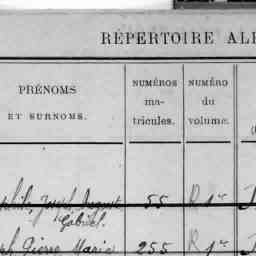 RÉPERTOIRE AL
PRÉNOMS
ET SURNOMS.
NUMÉROS
ma-
tricules.
NUMÉRO
du
volume.
Joseph, August 55 R 1er
Gabriel.
ph, Pierre Marie 255 R 1er